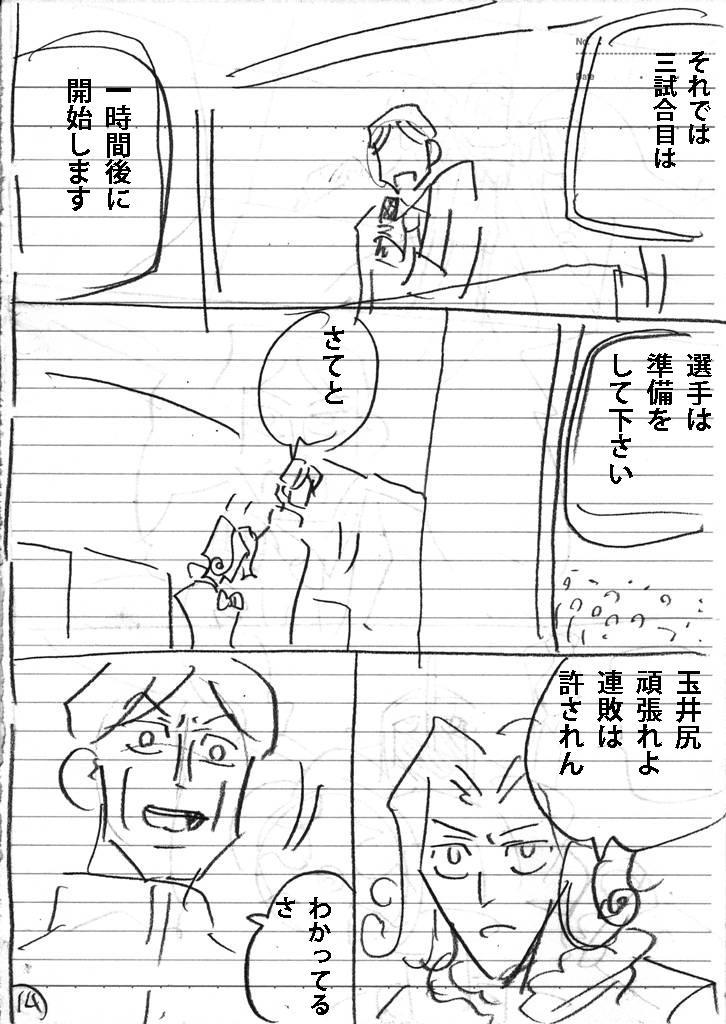 それでは
三試合目は
一時間後に
開始します
選手は
準備を
して下さい
さてと
玉井尻
頑張れよ
連敗は
許されん
わかってる
さ
No.
Date
14